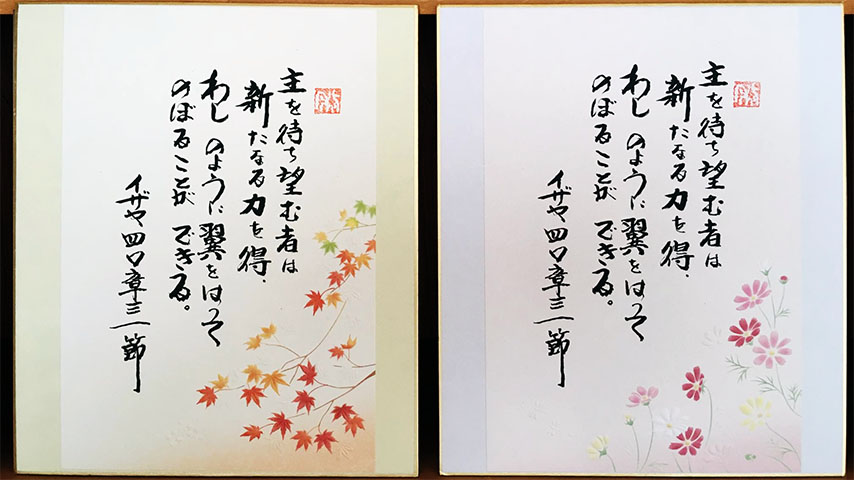 主を待ち望む者は
新たなる力を得、
わしのように翼をはって
のぼることができる。
イザヤ四〇章三一節
主を待ち望む者は
新たなる力を得、
わしのように翼をはって
のぼることができる。
イザヤ四〇章三一節